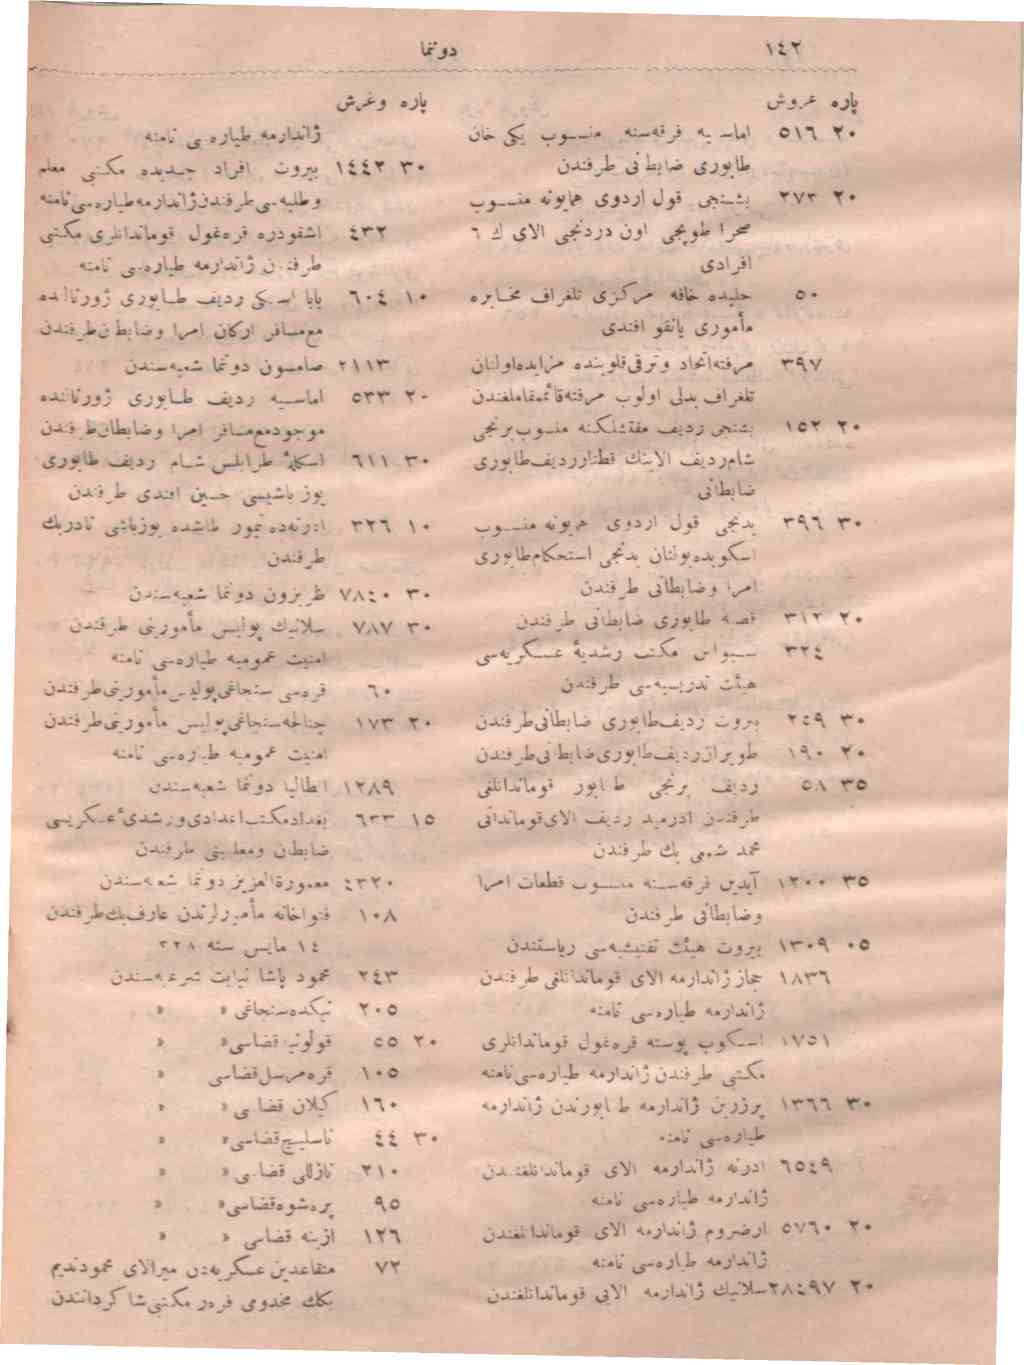 ١٤٢
دوننما
پاره غروش
٢٠ ٥١٦ اماسيه فرقه‌سنه منسوب يكى خان
طابورى ضابطانى طرفندن
٢٠ ٢٧٣ بشنجى قول اردوى همايونه منسوب
صحرا طوپجى اون دردنجى آلاى ك ٦
افرادى
٥٠ مركزى تلغراف مخابره
مأمورى يانقو افندى
٣٩٧ مرفته اتحاد وترقى قلوبنده مزايده اولنان
تلغراف بدلى اولوب مرفته قائممقاملغندن
٢٠ ١٥٢ بشنجى رديف مفتشلكنه منسوب برنجى
شام رديف آلاينك رديف طابورى
ضابطانى
٣٠ ٣٩٦ يدنجى قول اردوى همايونه منسوب
اسكوبده بولنان يدنجى استحكام طابورى
امرا وضابطانى طرفندن
٢٠ ٣١٢ طابورى ضابطانى طرفندن
٣٢٤ سيواس مكتب رشديۀ عسكريه‌سى
هيئت تدريسيه‌سى طرفندن
٣٠ ٢٤٩ بيروت رديف طابورى ضابطانى طرفندن
٢٠ ١٩٠ طويران رديف طابورى ضابطانى طرفندن
٣٥ ٥٨ رديف برنجى طابور قوماندانلغى
طرفندن ادرميد رديف آلاى قوماندانى
محمد شمسى بك طرفندن
٣٥ ١٢٠٠ آيدين فرقه‌سنه منسوب قطعات امرا
وضابطانى طرفندن
٠٥ ١٣٠٩ بيروت هيئت تفتيشيه‌سى رياستندن
١٨٣٦ حجاز ژاندارمه آلاى قوماندانلغى طرفندن
ژاندارمه طياره‌سى نامنه
١٧٥١ اسكوب پوسته قره‌غول قوماندانلرى
مكتبى طرفندن ژاندارمه طياره‌سى نامنه
٣٠ ١٣٦٦ پرزرين ژاندارمه طابورندن ژاندارمه
طياره‌سى نامنه
٦٥٤٩ ادرنه ژاندارمه آلاى قوماندانلغندن
ژاندارمه طياره‌سى نامنه
٢٠ ٥٧٦٠ ارضروم ژاندارمه آلاى قوماندانلغندن
ژاندارمه طياره‌سى نامنه
٢٠ ٢٨٤٩٧ سلانيك ژاندارمه آلايى قوماندانلغندن
پاره وغرش
ژاندارمه طياره‌سى نامنه
٣٠ ١٤٤٢ بيروت افراد جديده مكتبى معلم
وطلبه‌سى طرفندن ژاندارمه طياره‌سى نامنه
٤٣٢ اشقودره قره‌غول قوماندانلرى مكتبى
طرفندن ژاندارمه طياره‌سى نامنه
١٠ ٦٠٤ بابا اسكى رديف طابورى ژورنالنده
مع مسافر اركان امرا وضابطان طرفندن
٢١١٣ صامسون دوننما شعبه‌سندن
٢٠ ٥٣٣ اماسيه رديف طابورى ژورنالنده
موجود مع مسافر امرا وضابطان طرفندن
٣٠ ٦١١ اسكلۀ طرابلس شام رديف طابورى
يوزباشيسى حسين افندى طرفندن
١٠ ٣٢٦ ادرنه‌ده تيمور طاشده يوزباشى نادر بك
طرفندن
٣٠ ٧٨٤٠ طربزون دوننما شعبه‌سندن
٣٠ ٧٨٧ سلانيك پوليس مأمورينى طرفندن
امنيت عموميه طياره‌سى نامنه
٦٠ قره‌سى سنجاغى پوليس مأمورينى طرفندن
٢٠ ١٧٣ چتالجه سنجاغى پوليس مأمورينى طرفندن
امنيت عموميه طياره‌سى نامنه
١٢٨٩ انطاليا دوننما شعبه‌سندن
١٥ ٦٣٣ بغداد مكتب اعدادى ورشدئ عسكريسى
ضابطان ومعلمينى طرفندن
٤٣٢٠ معمورة العزيز دوننما شعبه‌سندن
١٠٨ فتواخانه مأمورلرندن عارف بك طرفندن
١٤ مايس سنه ٣٢٨
٢٤٣ محمود پاشا نيابت شرعيه‌سندن
٢٠٥ نيكده سنجاغى » »
٢٠ ٥٥ قولونيه قضاسى » »
١٠٥ قره مرسل قضاسى »
١٦٠ كيلان قضاسى » »
٣٠ ٤٤ ناسليج قضاسى » »
٢١٠ نازللى قضاسى » »
٩٥ پره‌شوه قضاسى » »
١٢٦ ازينه قضاسى » »
٧٢ متقاعدين عسكريه‌دن ميرآلاى محمود نديم
بكك مخدومى مكتبى شاكردانندن